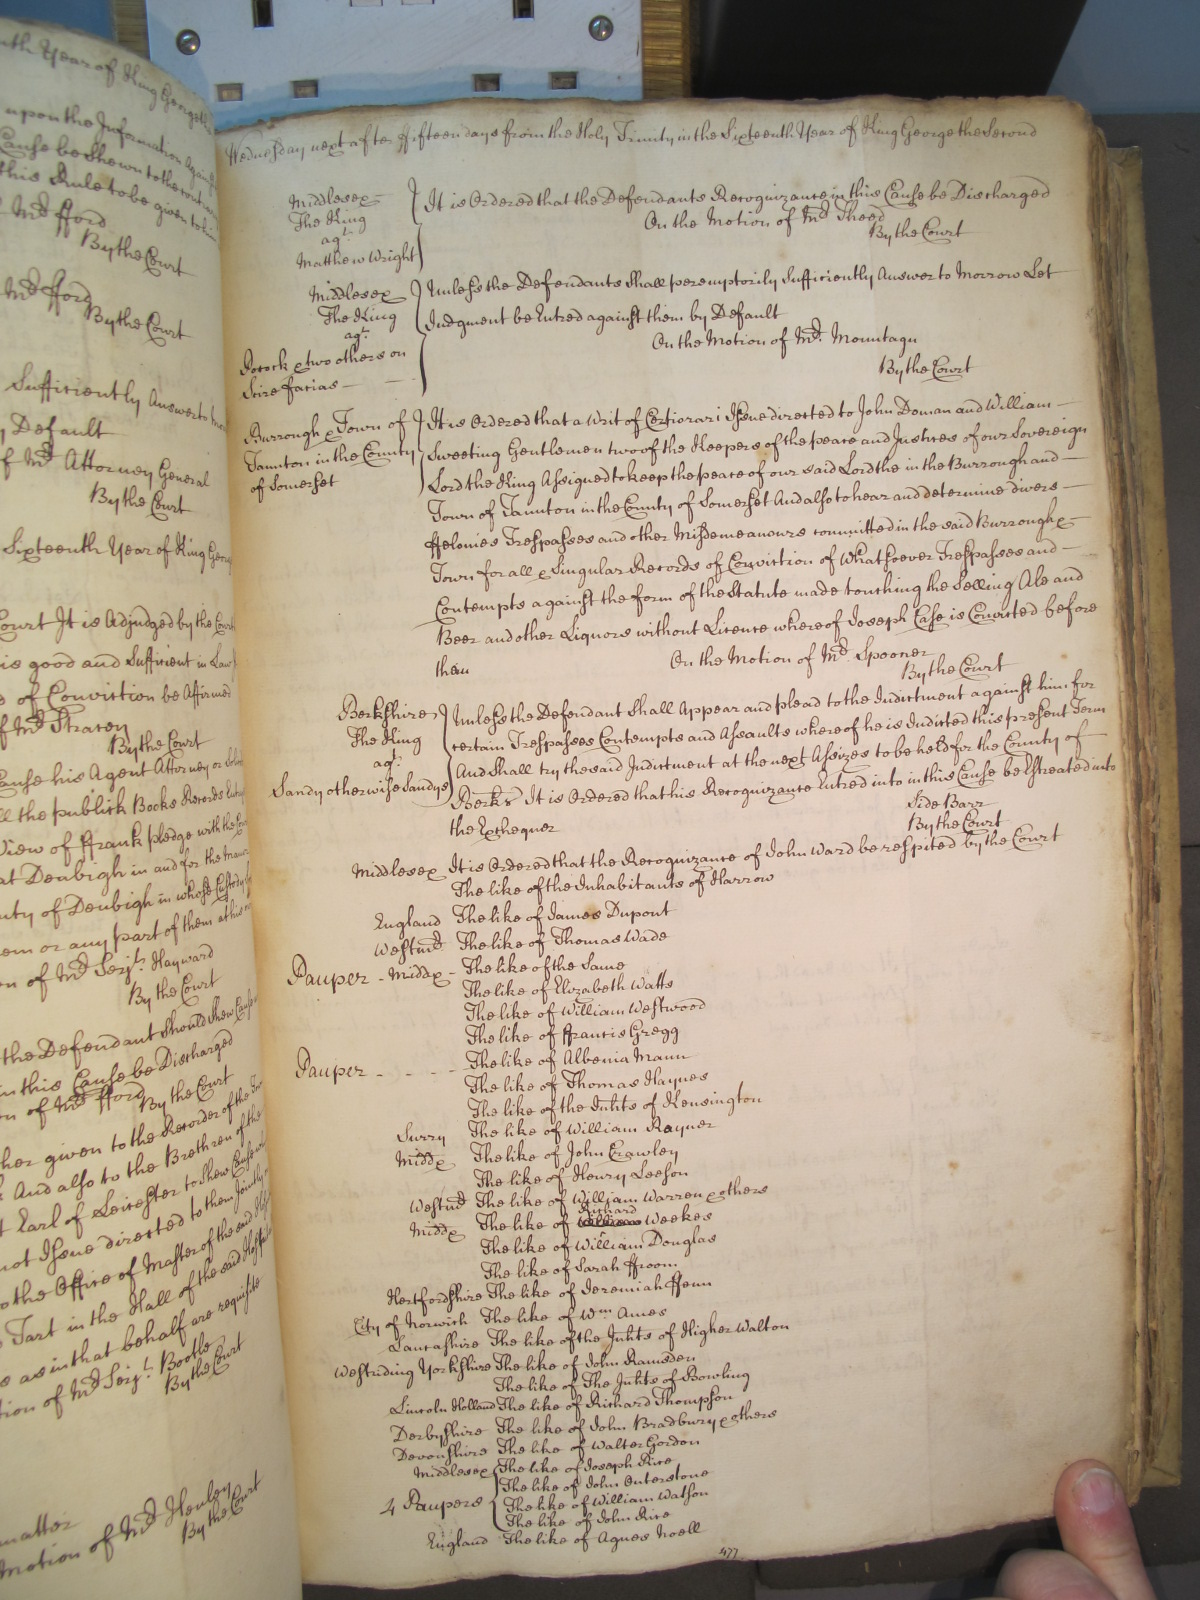 nth Year of King George the
upon the Information against
Cause be Shewn to the
this Rule to be given to him
Mr. fford
By the Court
Mr. fford
By the Court
Sufficiently Answer to
Default
of Mr. Attorney General
By the Court
Sixteenth Year of King
Court It is Adjudged by the Court
is good and Sufficient in Law
of Conviction be Affirmed
of Mr. Stracey
By the Court
Cause his Agent Attorney or
all the publick Books Records
View of ffrank pledge with the
at Denbigh in and for the
nty of Denbigh in whose Custody
em or any part of them at his
on of Mr. Serjt. Hayward
By the Court
the Defendant Should Shew Cause
in this Cause be Discharged
on of Mr. fford
By the Court
her given to the Recorder of the
And also to the Brethren of the
Earl of Leicester to Shew Cause
not Issue directed to them Jointly
the Office of Master of the said
Tart in the Hall of the said
s as in that behalf are requisite
tion of Mr. Serjt. Bootle
By the Court
matter
Motion of Mr. Henley
By the Court
Wednesday next after ffifteen days from the Holy Trinity in the Sixteenth Year of King George the Second
Middlesex
The King
agt.
Matthew Wright
It is Ordered that the Defendants Recognizance in this Cause be Discharged
On the Motion of Mr. Theed
By the Court
Middlesex
The King
agt.
Pocock & two others on
Scire facias
Unless the Defendants Shall peremptorily Sufficiently Answer to Morrow Let
Judgment be Entred against them by Default
On the Motion of Mr. Mountagu
By the Court
Burrough & Town of
Taunton in the County
of Somerset
It is Ordered that a Writ of Certiorari Issue directed to John Doman and William
Sweeting Gentlemen two of the Keepers of the peace and Justices of our Sovereign
Lord the King Assigned to keep the peace of our said Lord the in the Burrough and
Town of Taunton in the County of Somerset And also to hear and determine divers
ffelonies Trespasses and other Misdemeanours committed in the said Burrough &
Town for all & Singular Records of Conviction of Whatsoever Trespasses and
Contempts against the form of the Statute made touching the Selling Ale and
Beer and other Liquors without Licence whereof Joseph Case is Convicted before
them
On the Motion of Mr. Spooner
By the Court
Berkshire
The King
agt.
Sandy otherwise Sandys
Unless the Defendant Shall Appear and plead to the Indictment against him for
certain Trespasses Contempts and Assaults whereof he is Indicted this present Term
And Shall try the said Indictment at the next Assizes to be held for the County of
Berks It is Ordered that his Recognizance Entred into in this Cause be Estreated into
the Exchequer
Side Barr
By the Court
Middlesex It is Ordered that the Recognizance of John Ward be respited by the Court
The like of the Inhabitants of Harrow
England The like of James Dupont
Westmr The like of Thomas Wade
Pauper - Middx - The like of the Same
The like of Elizabeth Watts
The like of William Westwood
The like of ffrancis Gregg
Pauper - - - - The like of Albenia Mann
The like of Thomas Haynes
The like of the Inhts of Kensington
Surry The like of William Rayner
Middx The like of John Crawley
The like of Henry Leeson
Westmr The like of William Warren & others
Middx The like of Richard Weekes
The like of William Douglas
The like of Sarah ffroom
Hertfordshire The like of Jeremiah ffenn
City of Norwich The like of Wm. Ames
Lancashire The like of the Inhts of Higher Walton
Westriding Yorkshire The like of John Ramsden
The like of The Inhts of Bowling
Lincoln Holland The like of Richard Thompson
Derbyshire The like of John Bradbury & others
Devonshire The like of Walter Gordon
Middlesex The like of Joseph Rice
The like of John Outerstone
4 Paupers The like of William Watson
The like of John Rice
England The like of Agnes Noell
477